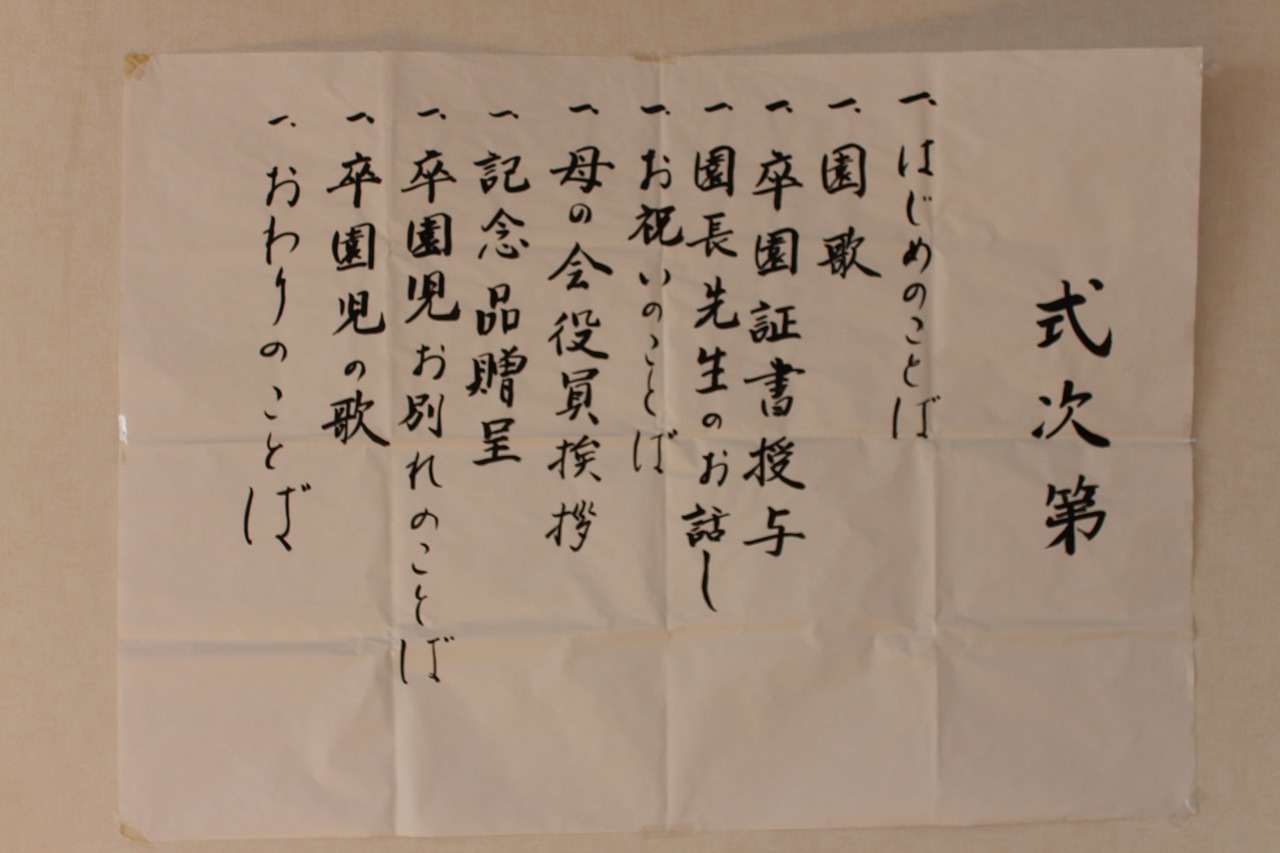 式次第
一、はじめのことば
一、園歌
一、卒園証書授与
一、園長先生のお話し
一、お祝いのことば
一、母の会役員挨拶
一、記念品贈呈
一、卒園児お別れのことば
一、卒園児の歌
一、おわりのことば